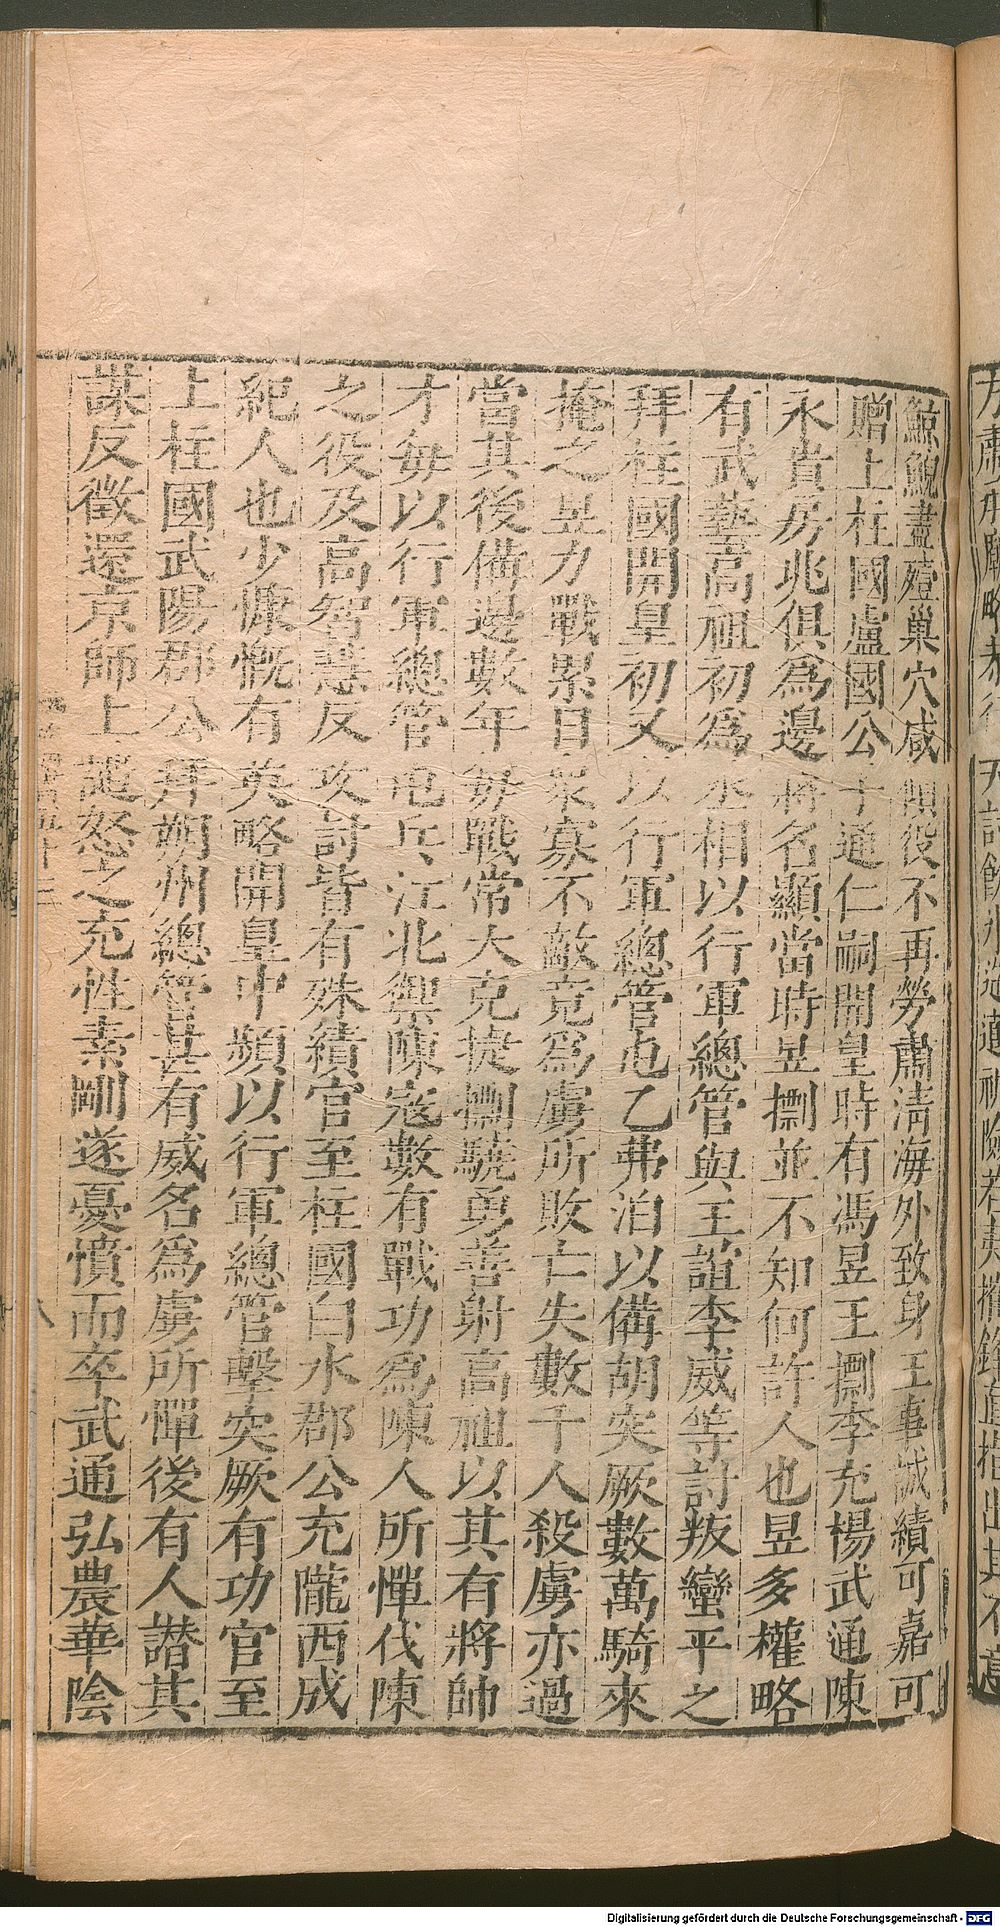 鯨鯢盡殪巢穴咸傾役不再勞肅清海外致身王事誠績可嘉可
贈上柱國盧國公子通仁嗣開皇時有馮昱王㔁李充楊武通陳
永貴房兆俱為邊將名顯當時昱㔁並不知何許人也昱多權略
有武藝高祖初為丞相以行軍總管與王誼李威等討叛蠻平之
拜柱國開皇初又以行軍總管屯乙弗泊以備胡突厥數萬騎來
掩之昱力戰累日眾寡不敵竟為虜所敗亡失數千人殺虜亦過
當其後備邊數年毎戰常大克捷㔁驍勇善射高祖以其有將帥
才毎以行軍總管屯兵江北禦陳寇數有戰功為陳人所憚伐陳
之役及高智慧反攻討皆有殊績官至柱國白水郡公充隴西成
紀人也少慷慨有英略開皇中頻以行軍總管擊突厥有功官至
上柱國武陽郡公拜朔州總管甚有威名為虜所憚後有人譖其
謀反徵還京師上譴怒之充性素剛遂憂憤而卒武通弘農華陰
Digitalisierung gefördert durch die Deutsche Forschungsgemeinschaft - DFG